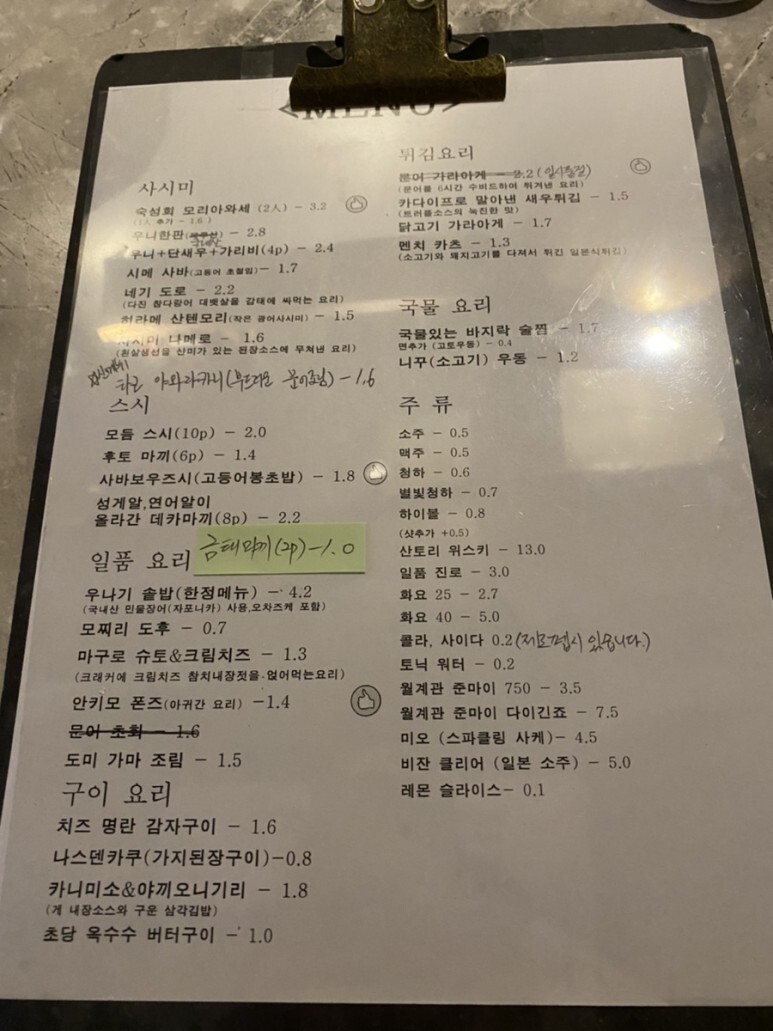 <MENU>
사시미
숙성회 모리아와세 (2人) - 3.2
(1人 추가 - 1.6 )
우니한판 - 2.8
우니+단새우+가리비(4p) - 2.4
시메 사바(고등어 초절임)- 1.7
네기 도로 - 2.2
(다진 참다랑어 대뱃살을 감태에 싸먹는 요리)
히라메 산텐모리(작은 광어사시미) - 1.5
사시미 나메로 - 1.6
(흰살생선을 산미가 있는 된장소스에 무쳐낸 요리)
타코 야와라카니(부드러운 문어조림) - 1.6
스시
모듬 스시(10p) - 2.0
후토 마끼(6p) - 1.4
사바보우즈시(고등어봉초밥) - 1.8
성게알,연어알이
올라간 데카마끼(8p) - 2.2
일품 요리
금태마끼(2p)-1.0
우나기 솥밥(한정메뉴) - 4.2
(국내산 민물장어(자포니카) 사용,오차즈케 포함)
모찌리 도후 - 0.7
마구로 슈토&크림치즈 - 1.3
(크래커에 크림치즈 참치내장젓을 얹어먹는요리)
안키모 폰즈(아귀간 요리) -1.4
문어 초회 - 1.6
도미 가마 조림 - 1.5
구이 요리
치즈 명란 감자구이 - 1.6
나스덴카쿠(가지된장구이)-0.8
카니미소&야끼오니기리 - 1.8
(게 내장소스와 구운 삼각김밥)
초당 옥수수 버터구이 - 1.0
튀김요리
문어 가라아게 - 2.2 (일시품절)
(문어를 6시간 수비드하여 튀겨낸 요리)
카다이프로 말아낸 새우튀김 - 1.5
(트러플소스의 녹진한 맛)
닭고기 가라아게 - 1.7
멘치 카츠 - 1.3
(소고기와 돼지고기를 다져서 튀긴 일본식튀김)
국물 요리
국물있는 바지락 술찜 - 1.7
면추가 (고토우동) - 0.4
니꾸(소고기) 우동 - 1.2
주 류
소주 - 0.5
맥주 - 0.5
청하 - 0.6
별빛청하 - 0.7
하이볼 - 0.8
(샷추가 +0.5)
산토리 위스키 - 13.0
일품 진로 - 3.0
화요 25 - 2.7
화요 40 - 5.0
콜라, 사이다 0.2(제로펩시 있습니다.)
토닉 워터 - 0.2
월계관 준마이 750 - 3.5
월계관 준마이 다이긴죠 - 7.5
미오 (스파클링 사케)- 4.5
비잔 클리어 (일본 소주) - 5.0
레몬 슬라이스- 0.1